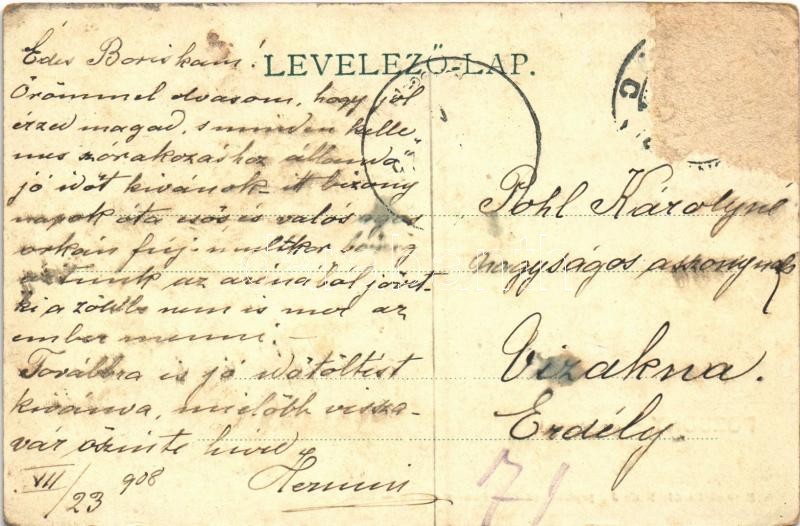 LEVELEZŐ-LAP.
Édes Boriskám!
Örömmel olvasom, hogy jól
érzed magad, s minden kelle
mes szórakozáshoz állandó
jó időt kivánok – itt bizony
napok óta esős és valóságos
orkán fúj. multkor bőrig
áztunk az arénából jövet –
ki a zöldbe nem is mer az
ember menni. –
Továbbra is jó időtöltést
kivánva, mielőbb vissza-
vár őszinte hived
Hermin
VII/23 908
Pohl Károlyné
nagyságos asszonynak
Vizakna.
Erdély.
71